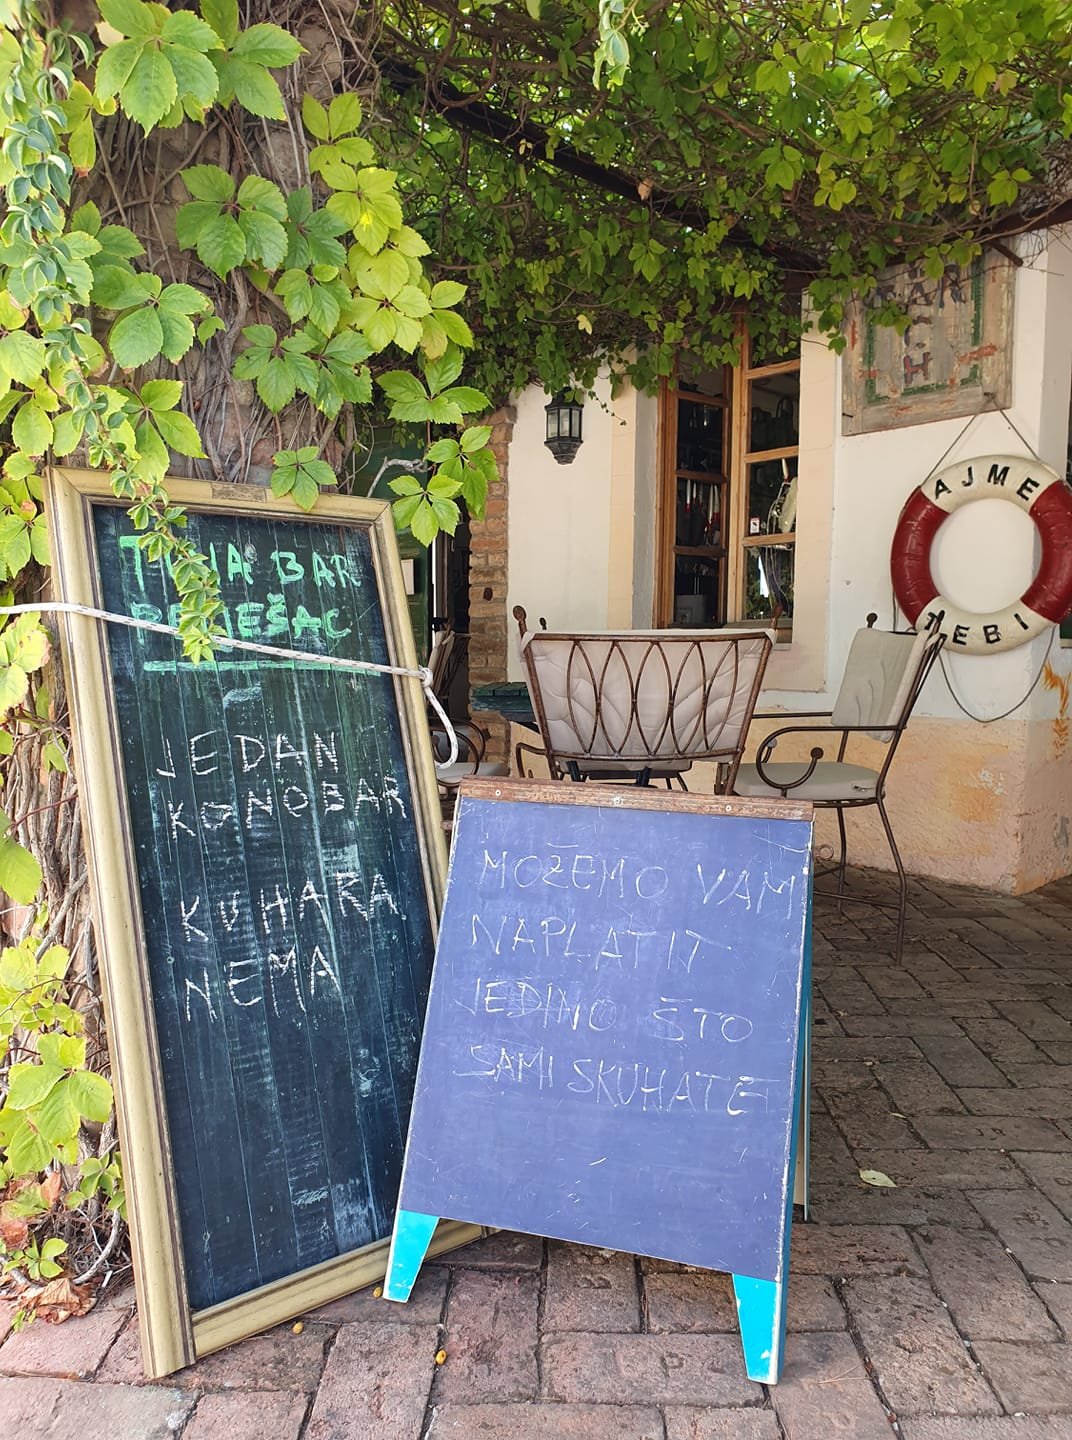 BAR
JEDAN
KONOBAR
KUHARA
NEMA
MOŽEMO VAM
NAPLATIT
JEDINO ŠTO
SAMI SKUHATE
AJME
TEBI